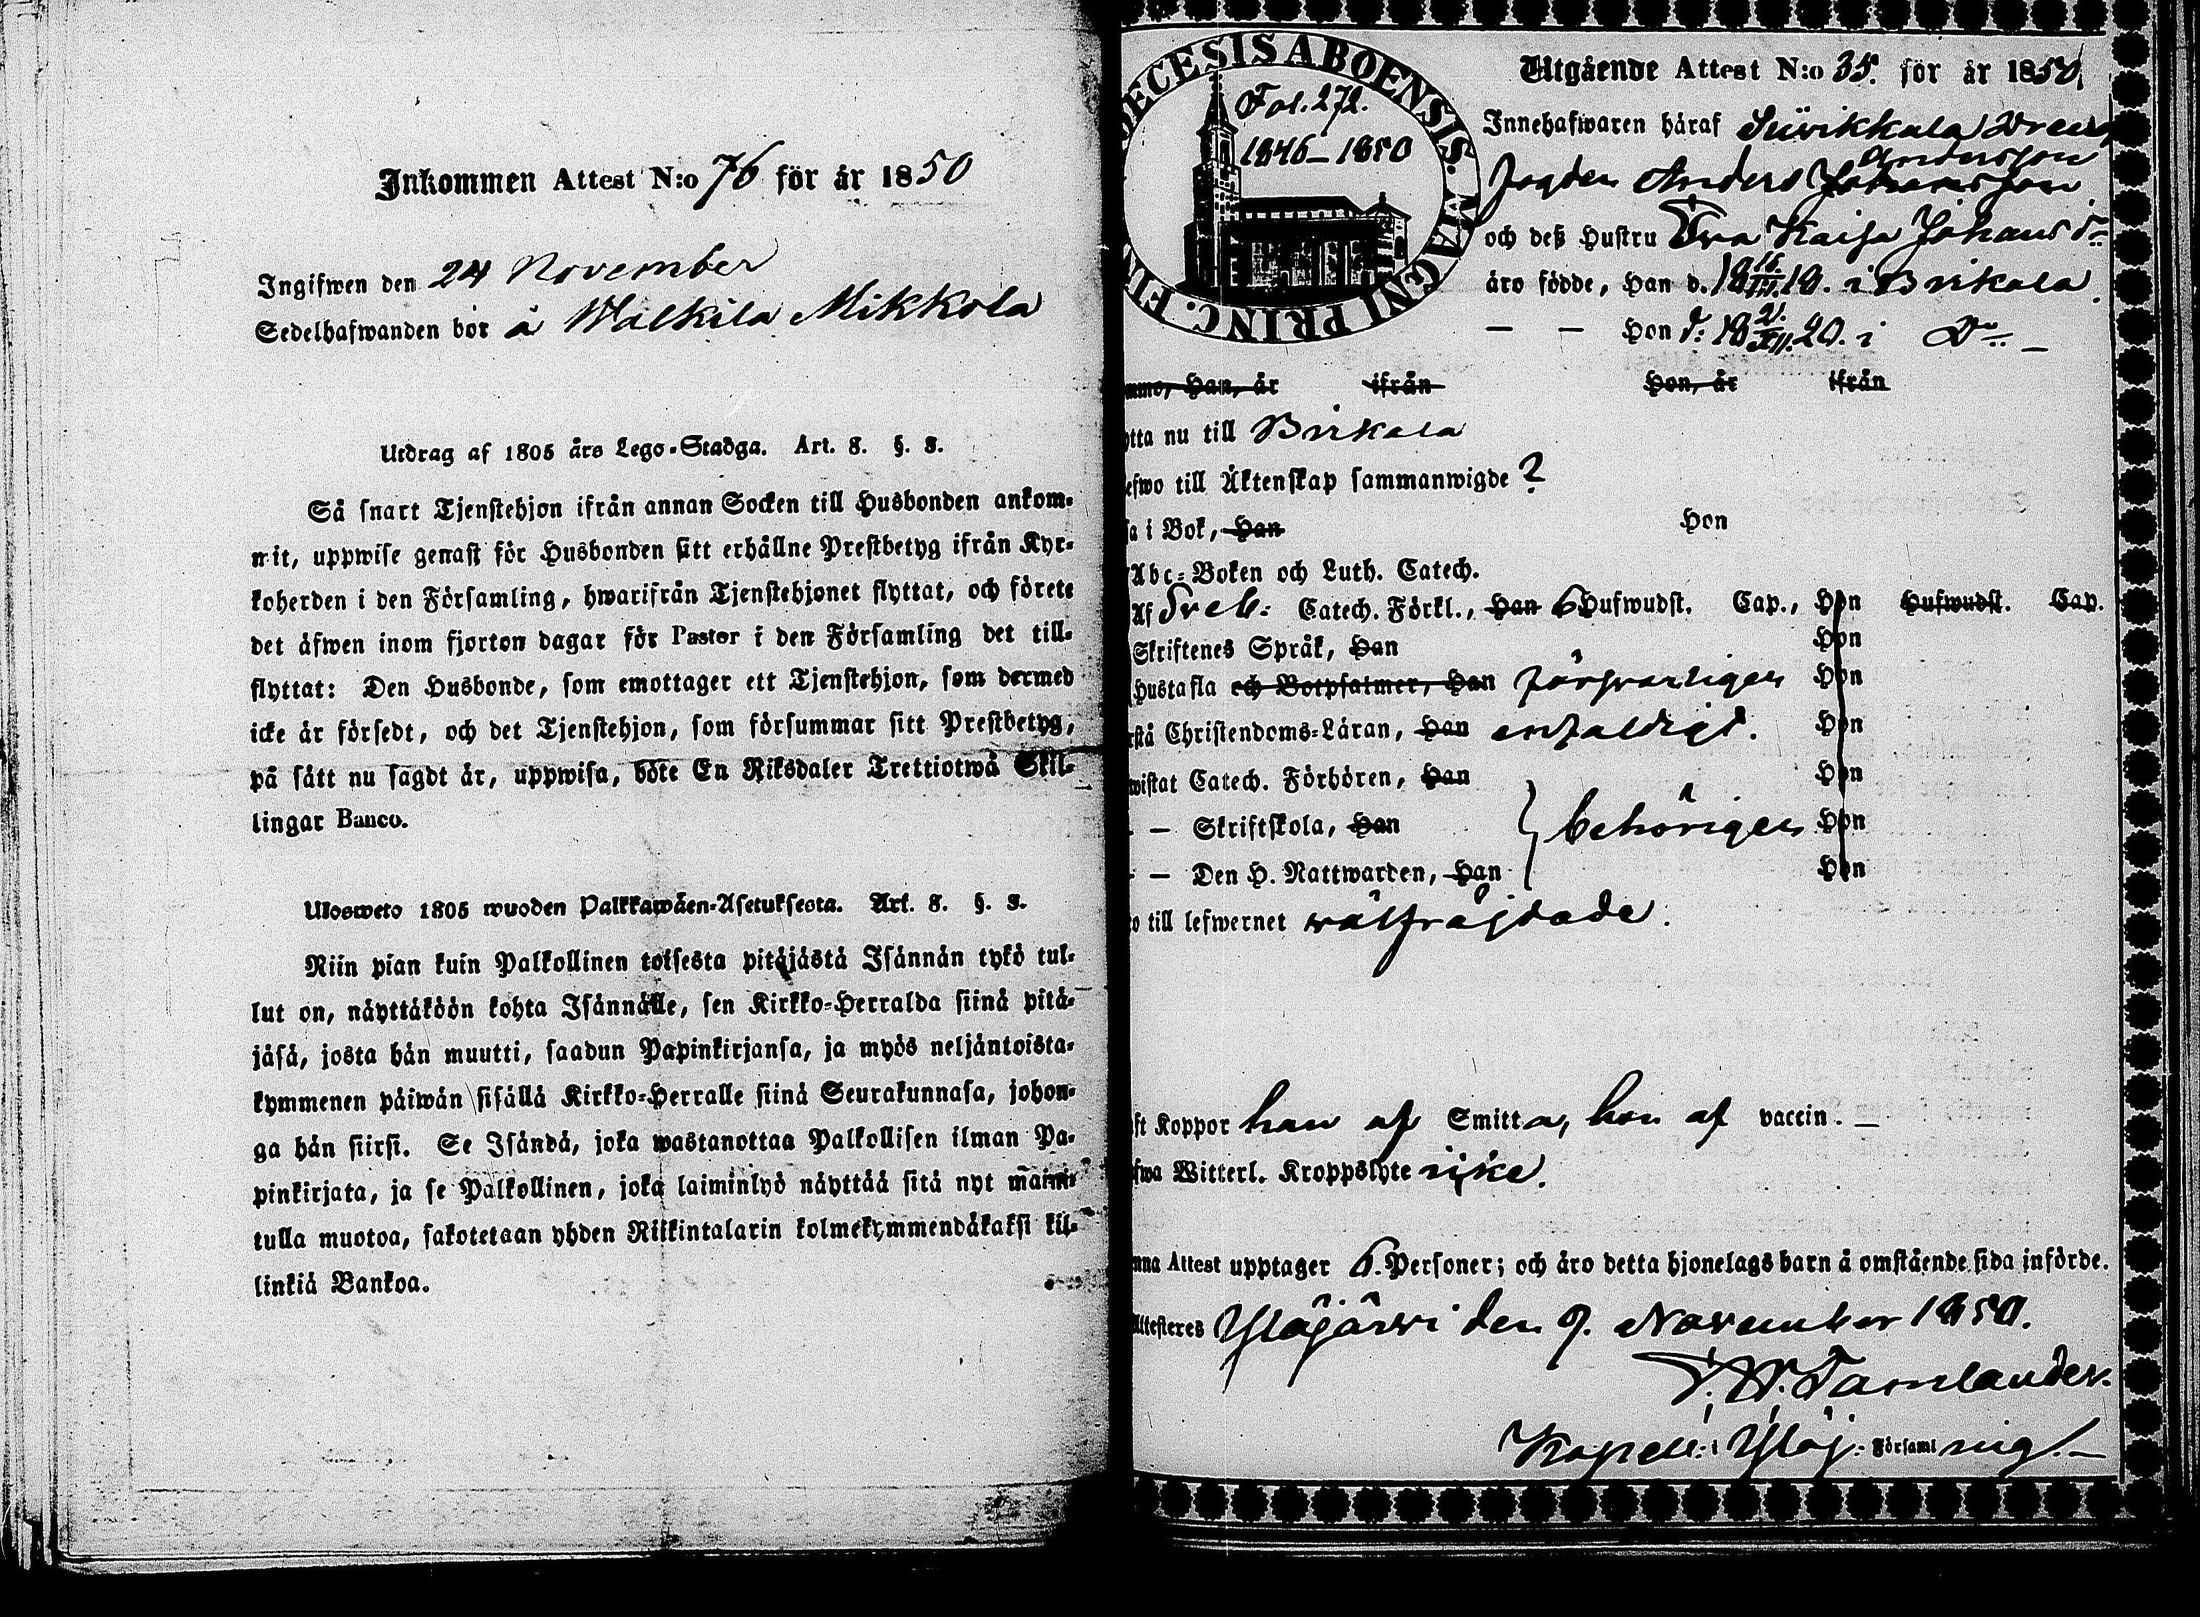 Inkommen Attest N:o 76 för år 1850
Ingifwen den 24 November
Sedelhafwanden bor å Walkila Mikkola
Utdrag af 1805 års Lego-Stadga. Art. 8. §. 3.
Så snart Tjenstehjon ifrån annan Socken till Husbonden ankom-
mit, uppwise genast för Husbonden sitt erhållne Prestbetyg ifrån Kyr-
koherden i den Församling, hwarifrån Tjenstehjonet flyttat, och förete
det äfwen inom fjorton dagar för Pastor i den Församling det till-
flyttat: Den Husbonde, som emottager ett Tjenstehjon, som dermed
icke är försedt, och det Tjenstehjon, som försummar sitt Prestbetyg,
på sätt nu sagdt är, uppwisa, böte En Riksdaler Trettiotwå Skil-
lingar Banco.
Ulosweto 1805 wuoden Palkkawäen-Asetuksesta. Art. 8. §. 3.
Niin pian kuin Palkollinen toisesta pitäjästä Isännän tykö tul-
lut on, näyttäköön kohta Isännälle, sen Kirkko-Herralda siinä pitä-
jäsä, josta hän muutti, saadun Papinkirjansa, ja myös neljäntoista-
kymmenen päiwän sisällä Kirkko-Herralle siinä Seurakunnasa, johon-
ga hän siirsi. Se Isändä, joka wastanottaa Palkollisen ilman Pa-
pinkirjata, ja se Palkollinen, joka laiminlyö näyttää sitä nyt maini-
tulla muotoa, sakotetaan yhden Riikintalarin kolmekymmendäkaksi kil-
linkiä Bankoa.
DECESIS ABOENSIS. MAGNI PRINC. FIN
Fol. 272.
1846–1850
Utgående Attest N:o 35. för år 1850.
Innehafwaren häraf Siwikkala Dreng
Andersson
Anders Johansson
och deß Hustru Eva Kaisa Johansd:r
äro födde, Han d. 18 16/III 18. i Birkala.
— — Hon d: 18 2/XII 20. i D:o —
mmo, Han, år ifrån Hon, år ifrån
ytta nu till Birkala
efwo till Äktenskap sammanwigde ?
sa i Bok, Han Hon
Abc-Boken och Luth. Catech.
Af Sveb: Catech. Förkl., Han 6 Hufwudst. Cap., Hon Hufwudst. Cap.
Skriftenes Språk, Han Hon
Hustafla och Botpsalmer, Han försvarligen Hon
rstå Christendoms-Läran, Han enfaldigt. Hon
wistat Catech. Förhören, Han Hon
- — Skriftskola, Han behörigen Hon
- — Den H. Nattwarden, Han Hon
o till lefwernet wälfrägdade.
ft Koppor han af Smitta, hon af vaccin. —
fwa Witterl. Kroppslyte icke.
nna Attest upptager 6. Personer; och äro detta hjonelags barn å omstående sida införde.
Attesteres Ylöjärvi den 9. November 1850.
F. W. Tamlander.
Kapell: i Ylöj: Församl ing. —